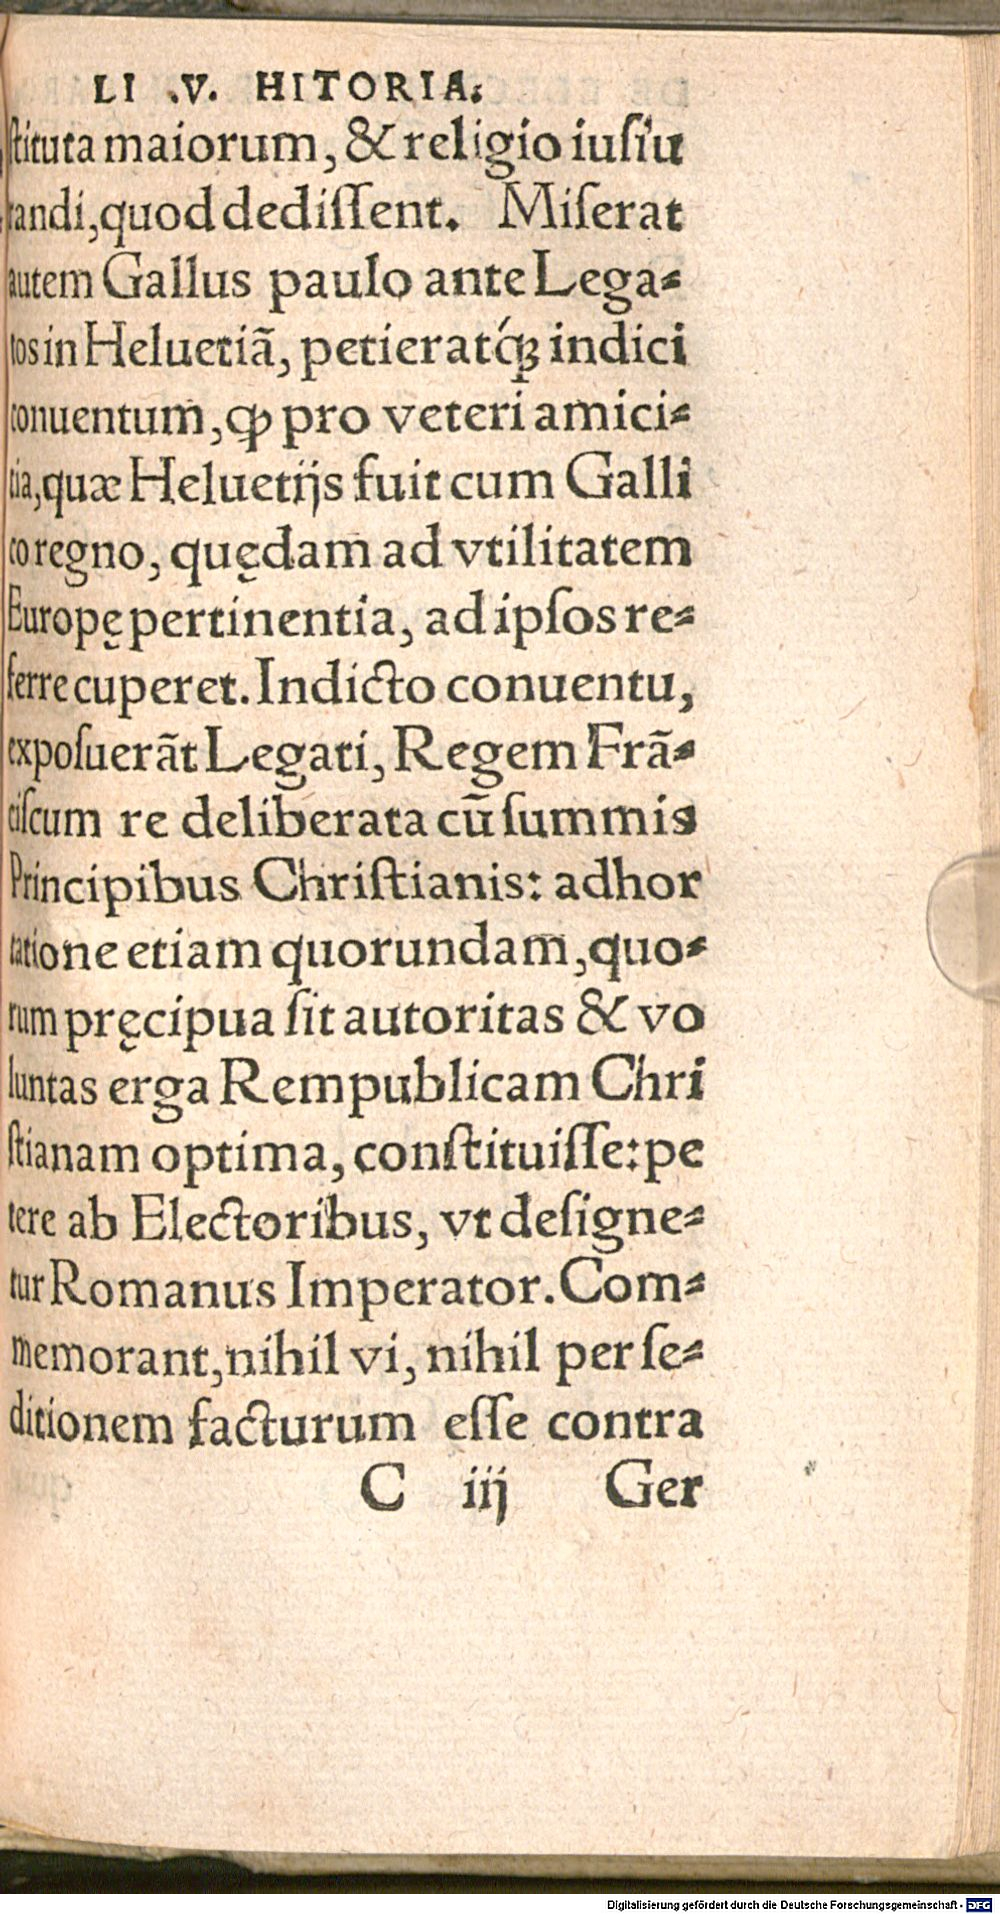 LI .V. HITORIA.
ſtituta maiorum, & religio iuſiu
randi, quod dediſſent. Miſerat
autem Gallus paulo ante Lega⸗
tos in Heluetiã, petieratq́ꝫ indici
conuentum, ꝙ pro veteri amici⸗
tia, quæ Heluetijs fuit cum Galli
co regno, quędam ad vtilitatem
Europę pertinentia, ad ipſos re⸗
ferre cuperet. Indicto conuentu,
expoſuerãt Legati, Regem Frã⸗
ciſcum re deliberata cũ ſummis
Principibus Chriſtianis: adhor
tatione etiam quorundam, quo⸗
rum pręcipua ſit autoritas & vo
luntas erga Rempublicam Chri
ſtianam optima, conſtituiſſe: pe
tere ab Electoribus, vt deſigne⸗
tur Romanus Imperator. Com⸗
memorant, nihil vi, nihil per ſe⸗
ditionem facturum eſſe contra
C iij Ger
Digitalisierung gefördert durch die Deutsche Forschungsgemeinschaft - DFG